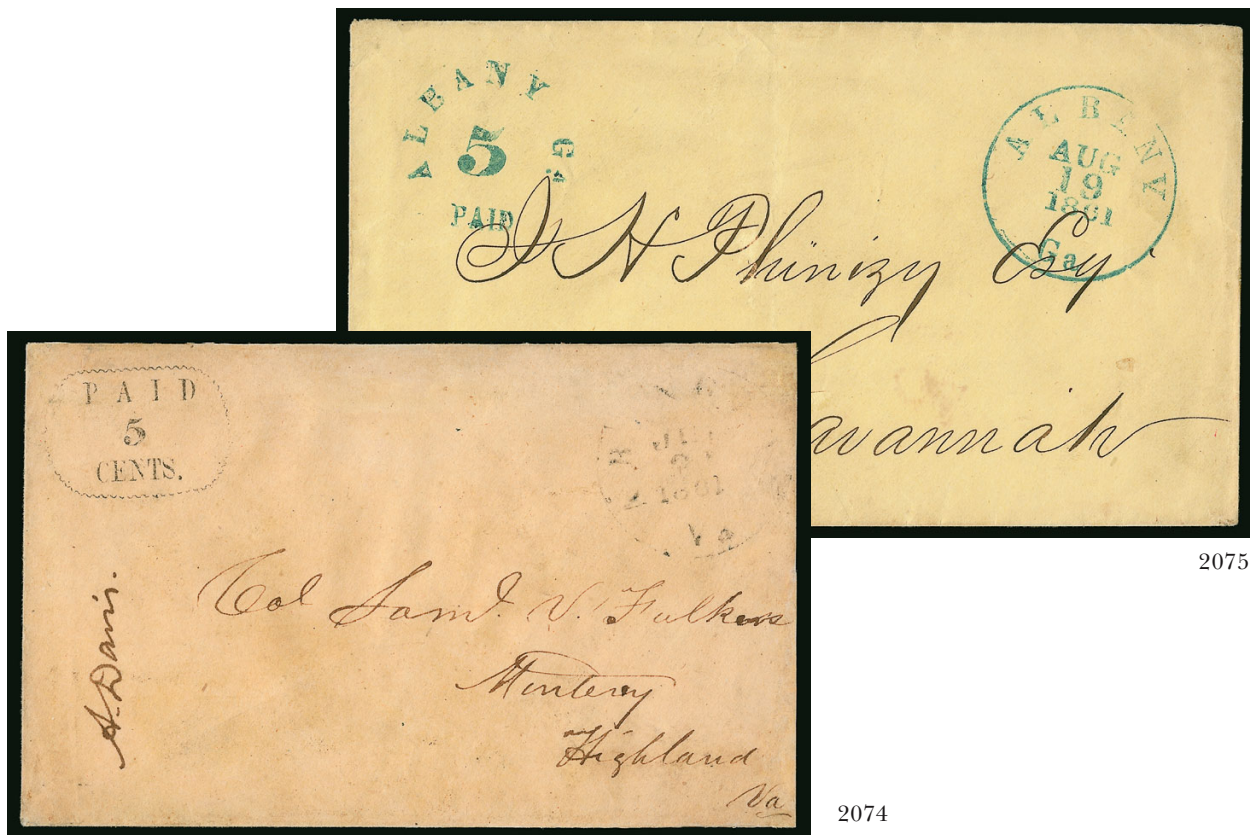 ALBANY Ga.
5
PAID
ALBANY
AUG
19
1861
Ga
J H Phinizy Esq
avannah
2075
PAID
5
CENTS.
1861
Va
A. Davis.
Col Saml. V. Fulkers
Montery
Highland
Va
2074